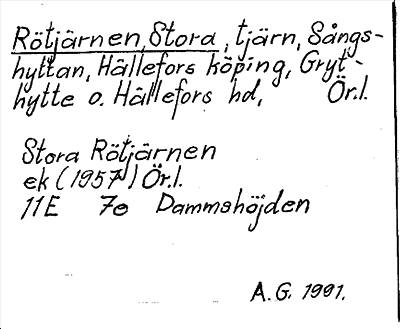 Rötjärnen, Stora, tjärn, Sångs-
hyttan, Hällefors köping, Gryt-
hytte o. Hällefors hd, Ör.l.
Stora Rötjärnen
ek (1957) Ör.l.
11E 7e Dammshöjden
A.G. 1991.